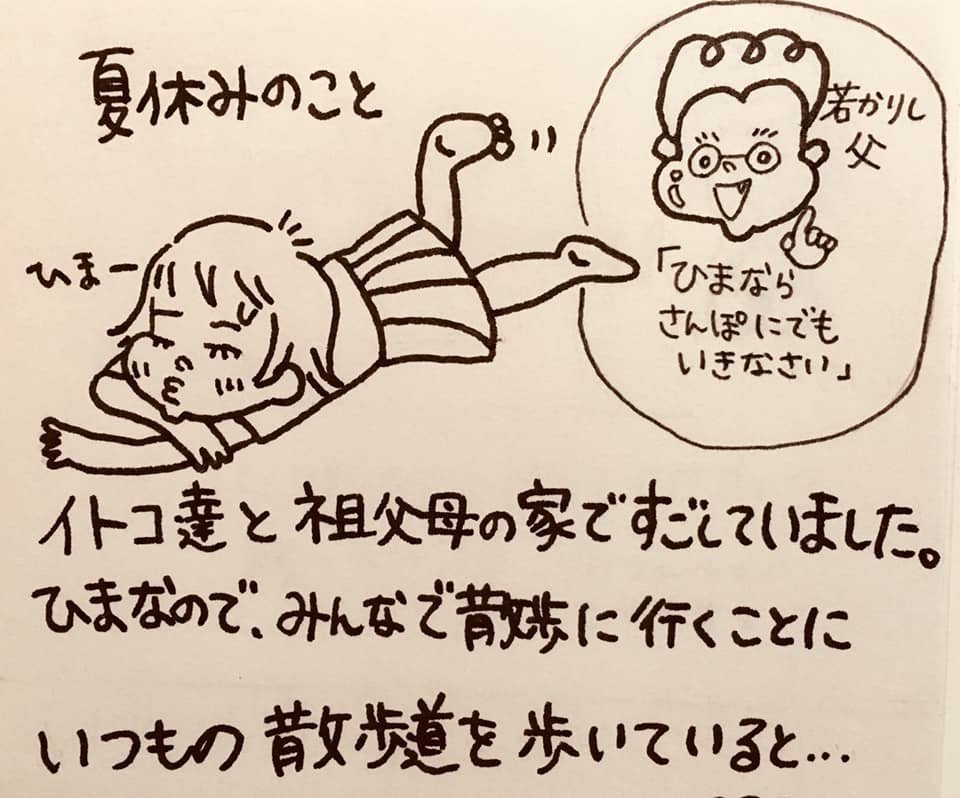 夏休みのこと
ひまー
若かりし
父
「ひまなら
さんぽにでも
いきなさい」
イトコ達と祖父母の家ですごしていました。
ひまなので、みんなで散歩に行くことに
いつもの散歩道を歩いていると...